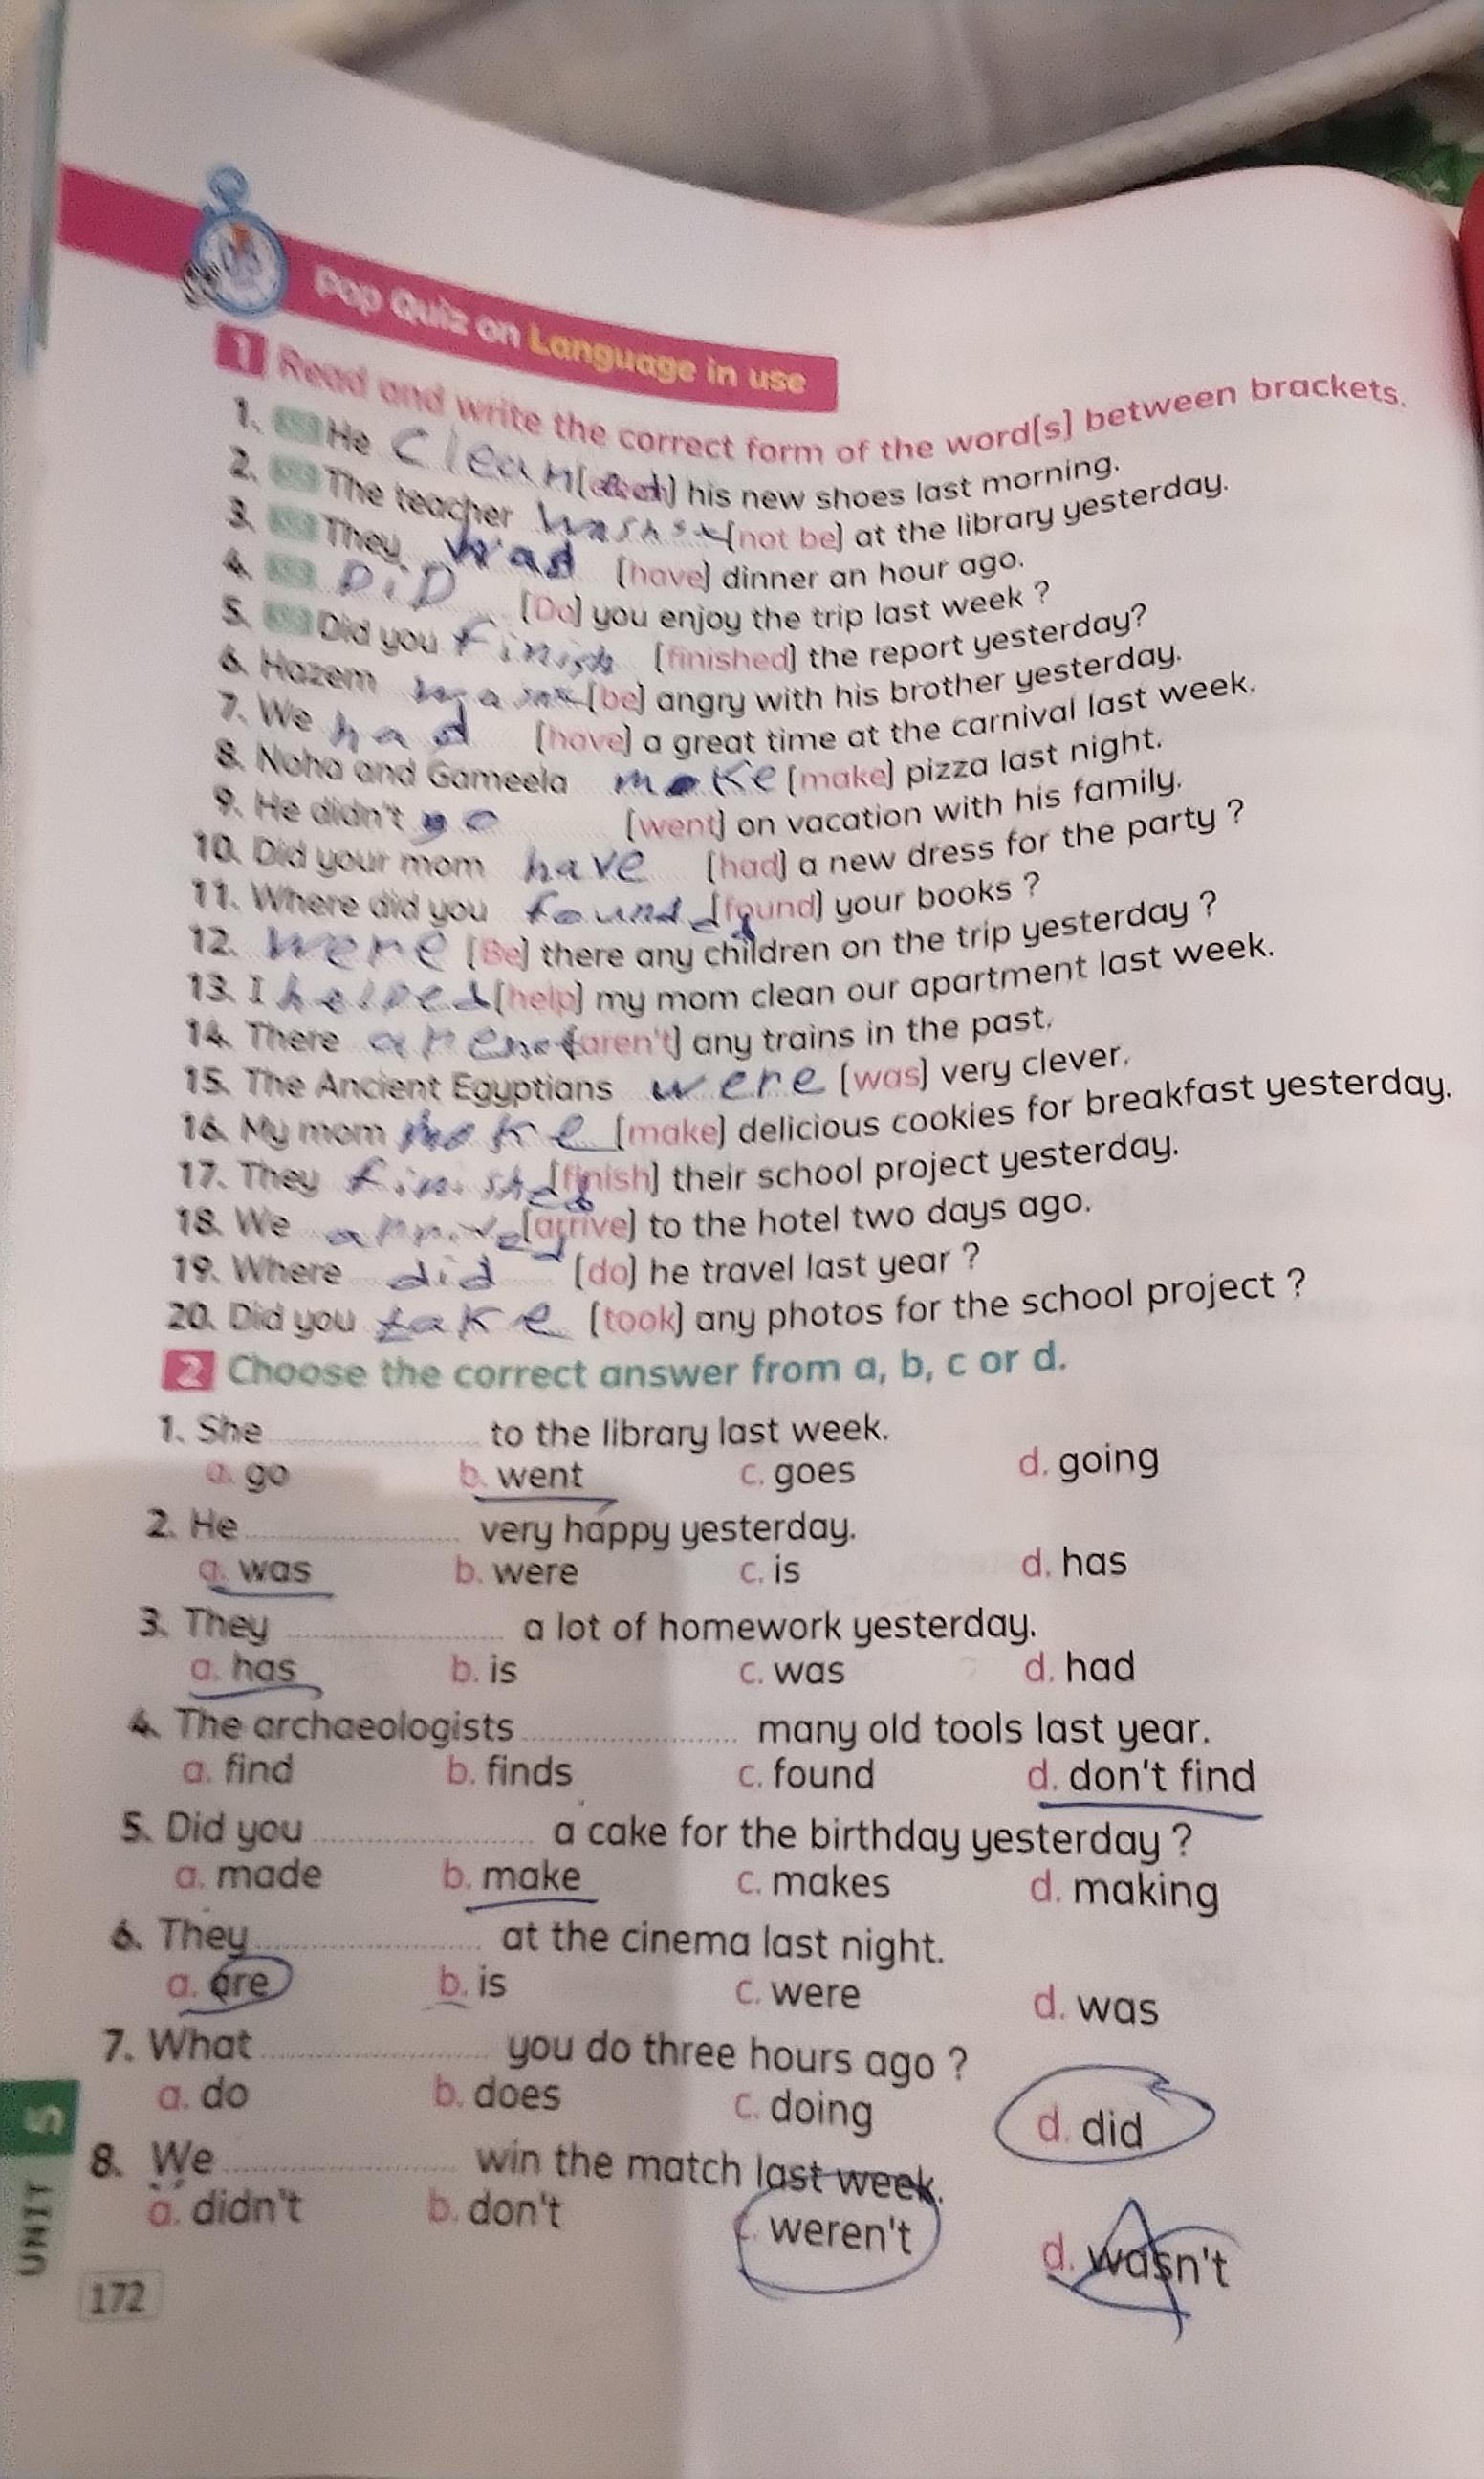 Pop Quiz on Language in use
1 Read and write the correct form of the word[s] between brackets.
1. He cleaned his new shoes last morning.
2. The teacher [not be] at the library yesterday.
3. They [have] dinner an hour ago.
4. DiD [Do] you enjoy the trip last week ?
5. Did you finish [finished] the report yesterday?
6. Hazem [be] angry with his brother yesterday.
7. We had [have] a great time at the carnival last week.
8. Noha and Gameela make [make] pizza last night.
9. He didn't go [went] on vacation with his family.
10. Did your mom have [had] a new dress for the party ?
11. Where did you found [found] your books ?
12. were [Be] there any children on the trip yesterday ?
13. I helped [help] my mom clean our apartment last week.
14. There [aren't] any trains in the past.
15. The Ancient Egyptians were [was] very clever.
16. My mom make [make] delicious cookies for breakfast yesterday.
17. They finished [finish] their school project yesterday.
18. We arrived [arrive] to the hotel two days ago.
19. Where did [do] he travel last year ?
20. Did you take [took] any photos for the school project ?
2 Choose the correct answer from a, b, c or d.
1. She ............ to the library last week.
a. go b. went c. goes d. going
2. He ............ very happy yesterday.
a. was b. were c. is d. has
3. They ............ a lot of homework yesterday.
a. has b. is c. was d. had
4. The archaeologists ............ many old tools last year.
a. find b. finds c. found d. don't find
5. Did you ............ a cake for the birthday yesterday ?
a. made b. make c. makes d. making
6. They ............ at the cinema last night.
a. are b. is c. were d. was
7. What ............ you do three hours ago ?
a. do b. does c. doing d. did
8. We ............ win the match last week.
a. didn't b. don't c. weren't d. wasn't
UNIT 5
172